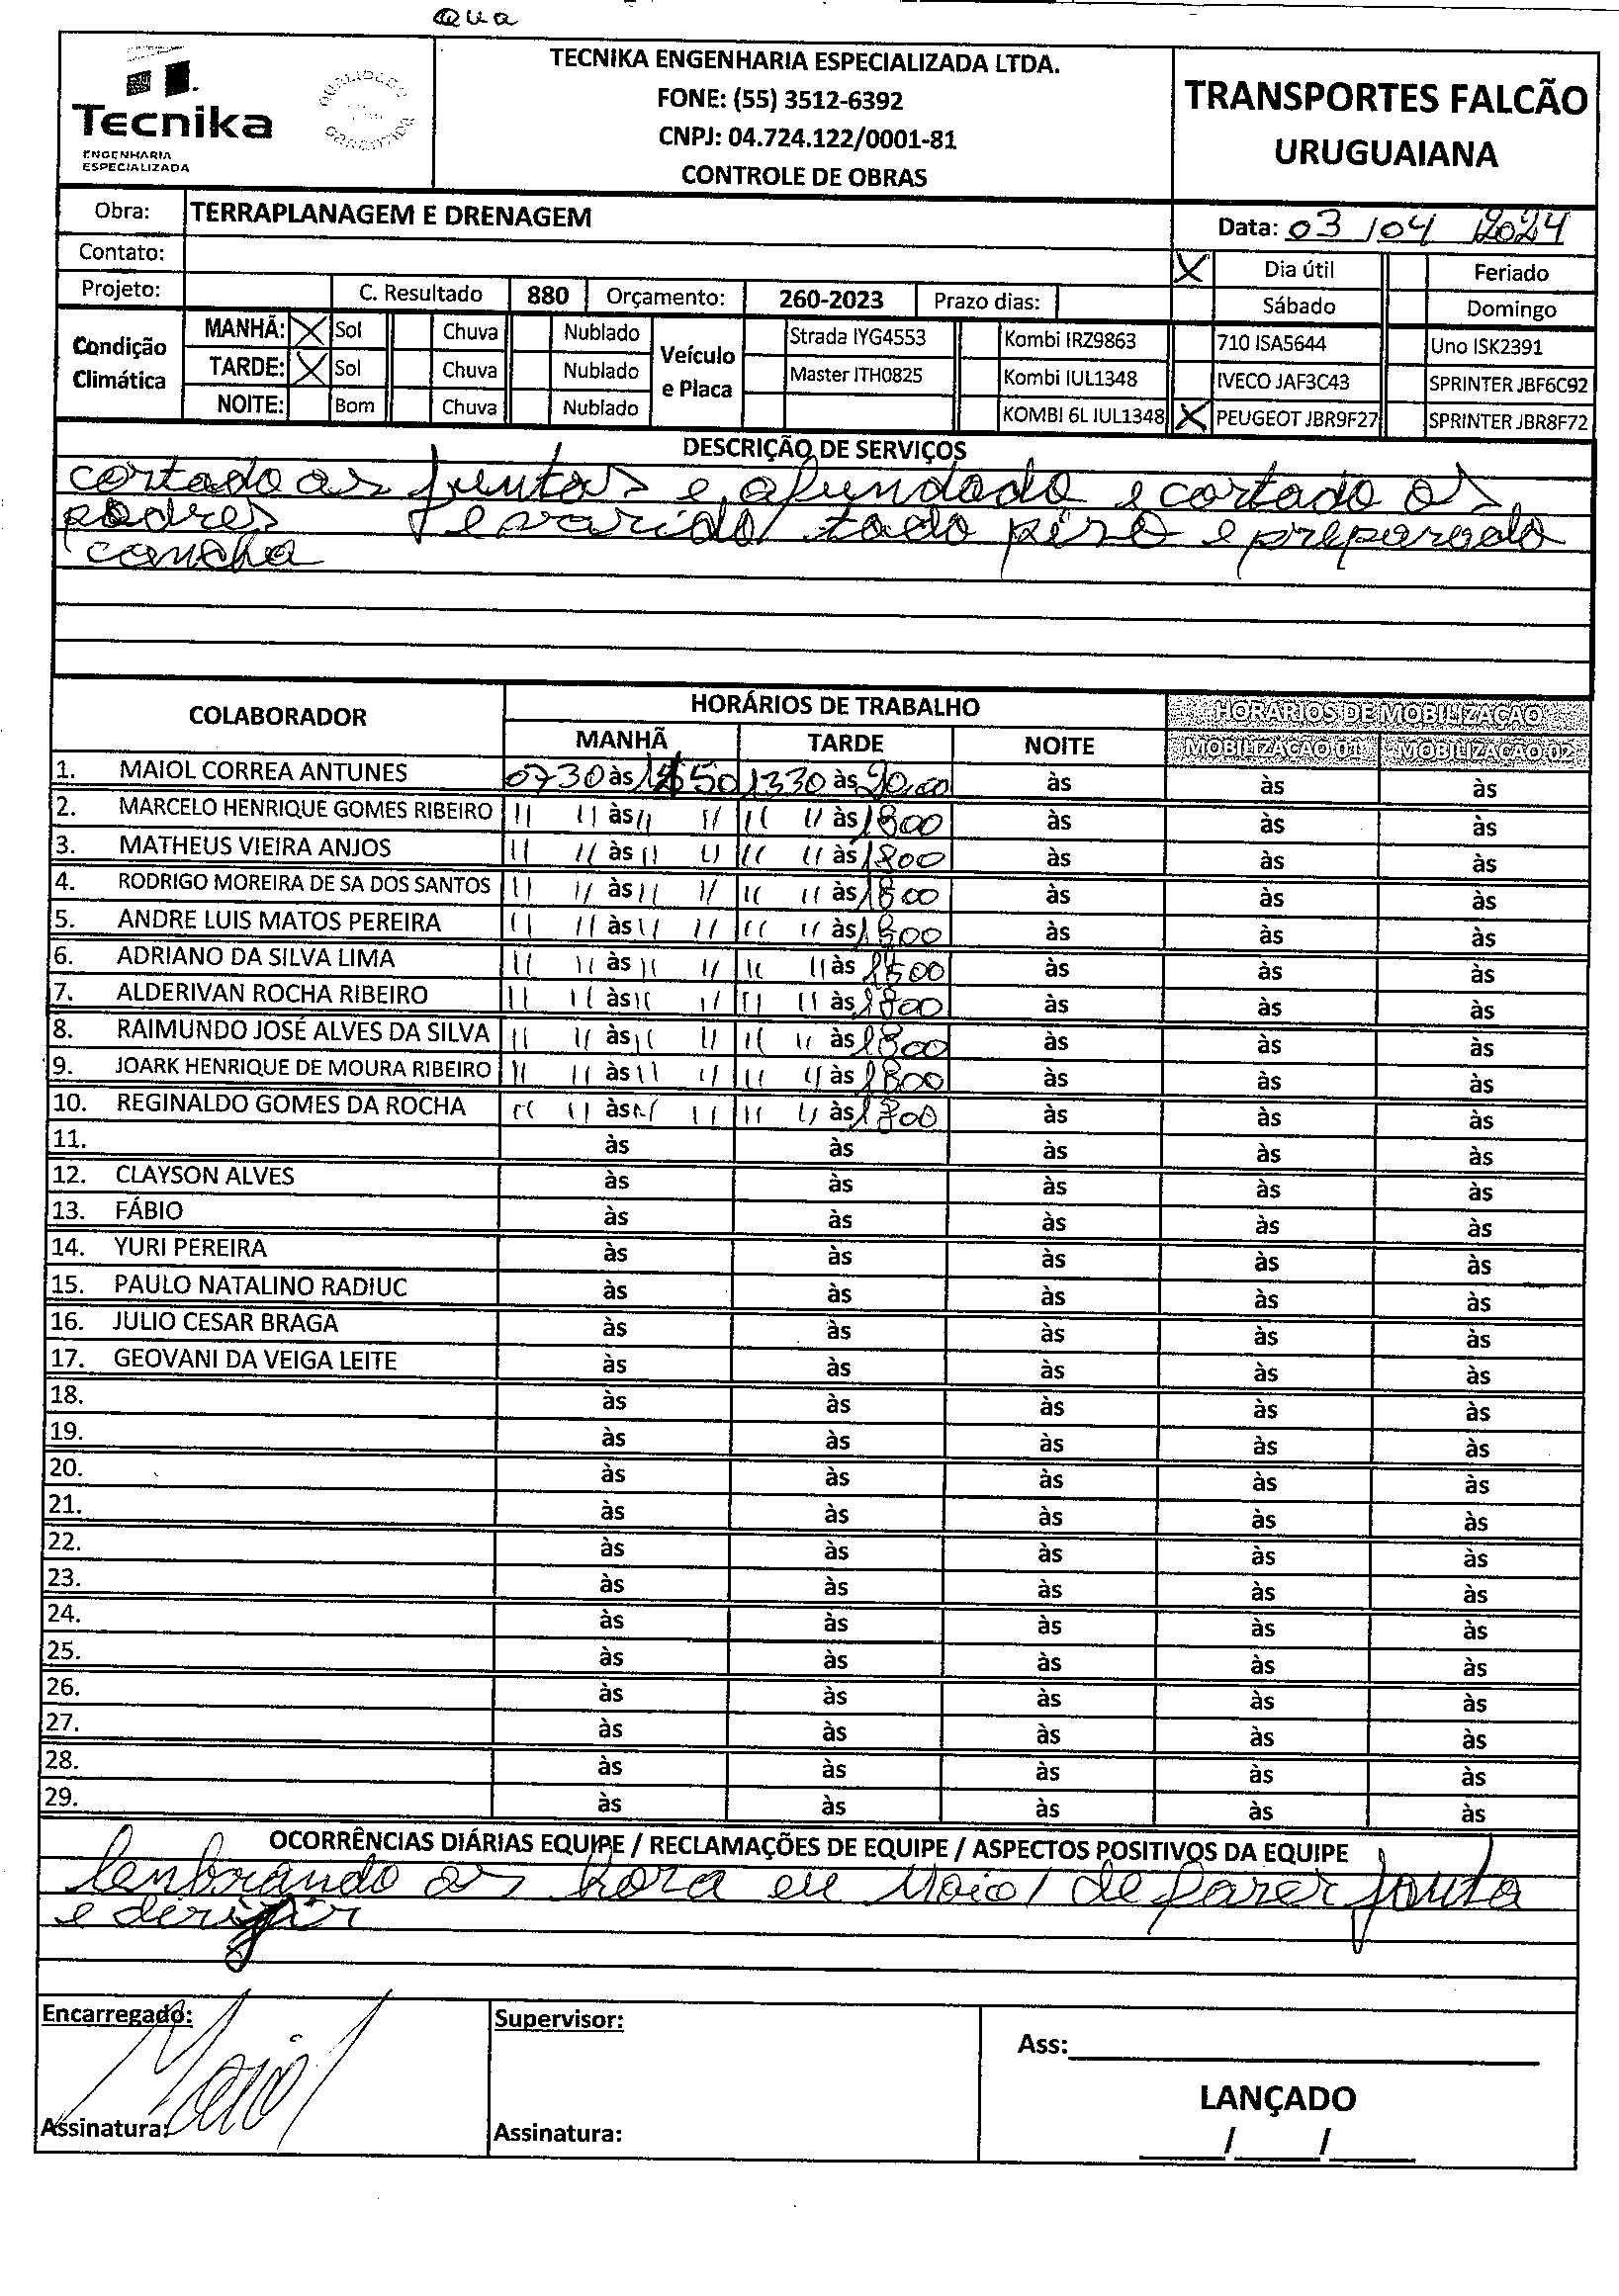 Qua
Tecnika
ENGENHARIA
ESPECIALIZADA
TECNIKA ENGENHARIA ESPECIALIZADA LTDA.
FONE: (55) 3512-6392
CNPJ: 04.724.122/0001-81
CONTROLE DE OBRAS
TRANSPORTES FALCÃO
URUGUAIANA
Obra: TERRAPLANAGEM E DRENAGEM
Data: 03 / 04 / 2024
Contato:
X Dia útil Feriado
Projeto: C. Resultado 880 Orçamento: 260-2023 Prazo dias:
Sábado Domingo
Condição Climática
MANHÃ: X Sol Chuva Nublado
TARDE: X Sol Chuva Nublado
NOITE: Bom Chuva Nublado
Veículo e Placa
Strada IYG4553 Kombi IRZ9863 710 ISA5644 Uno ISK2391
Master ITH0825 Kombi IUL1348 IVECO JAF3C43 SPRINTER JBF6C92
KOMBI 6L IUL1348 X PEUGEOT JBR9F27 SPRINTER JBR8F72
DESCRIÇÃO DE SERVIÇOS
cortado as juntas e afundado e cortado os
padres e varido todo piso e preparado
cancha
COLABORADOR HORÁRIOS DE TRABALHO HORÁRIOS DE MOBILIZAÇÃO
MANHÃ TARDE NOITE MOBILIZAÇÃO 01 MOBILIZAÇÃO 02
1. MAIOL CORREA ANTUNES 0730 às 50 1330 às 20:00 às às às
2. MARCELO HENRIQUE GOMES RIBEIRO " " às " " " " às 1800 às às às
3. MATHEUS VIEIRA ANJOS " " às " " " " às 1800 às às às
4. RODRIGO MOREIRA DE SA DOS SANTOS " " às " " " " às 1800 às às às
5. ANDRE LUIS MATOS PEREIRA " " às " " " " às 1800 às às às
6. ADRIANO DA SILVA LIMA " " às " " " " às 1800 às às às
7. ALDERIVAN ROCHA RIBEIRO " " às " " " " às 1800 às às às
8. RAIMUNDO JOSÉ ALVES DA SILVA " " às " " " " às 1800 às às às
9. JOARK HENRIQUE DE MOURA RIBEIRO " " às " " " " às 1800 às às às
10. REGINALDO GOMES DA ROCHA " " às " " " " às 1800 às às às
11. às às às às às
12. CLAYSON ALVES às às às às às
13. FÁBIO às às às às às
14. YURI PEREIRA às às às às às
15. PAULO NATALINO RADIUC às às às às às
16. JULIO CESAR BRAGA às às às às às
17. GEOVANI DA VEIGA LEITE às às às às às
18. às às às às às
19. às às às às às
20. às às às às às
21. às às às às às
22. às às às às às
23. às às às às às
24. às às às às às
25. às às às às às
26. às às às às às
27. às às às às às
28. às às às às às
29. às às às às às
OCORRÊNCIAS DIÁRIAS EQUIPE / RECLAMAÇÕES DE EQUIPE / ASPECTOS POSITIVOS DA EQUIPE
lenbrando as hora eu Maiol de fazer junta
e derigir
Encarregado: Supervisor:
Ass:
Maiol
LANÇADO
Assinatura: Assinatura:
/ /